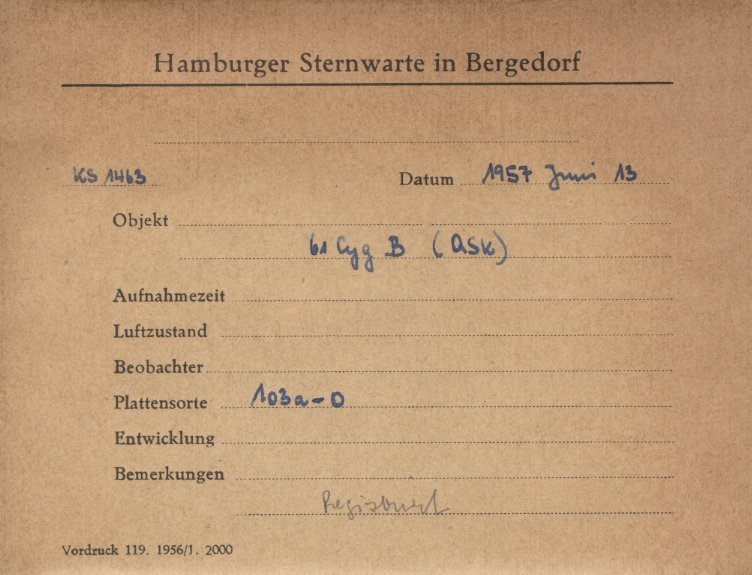 Hamburger Sternwarte in Bergedorf
KS 1463 Datum 1957 Juni 13
Objekt
61 Cyg B (QSK)
Aufnahmezeit
Luftzustand
Beobachter
Plattensorte 103a-O
Entwicklung
Bemerkungen
Registriert
Vordruck 119. 1956/1. 2000